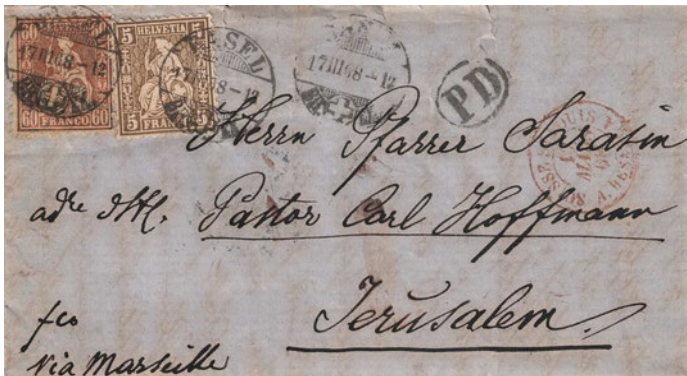 HELVETIA
60 FRANCO 60
5 HELVETIA 5
5 FRANCO 5
BASEL
17 III 68 – 12
BASEL
17 III 68 – 12
17 III 68 – 12
PD
Herrn Pfarrer Sarasin
adre
Pastor Carl Hoffmann
Jerusalem.
fco
via Marseille